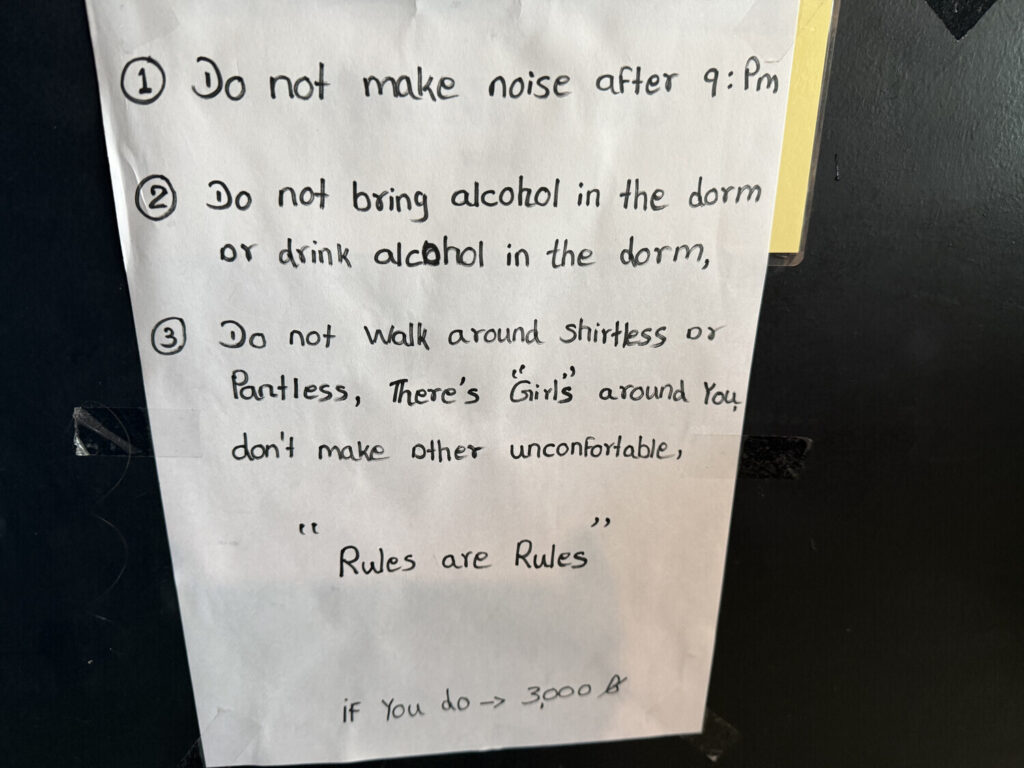 ① Do not make noise after 9:Pm
② Do not bring alcohol in the dorm
or drink alcohol in the dorm,
③ Do not walk around shirtless or
Pantless, There's "Girls" around You,
don't make other unconfortable,
"Rules are Rules"
if You do → 3,000 ฿